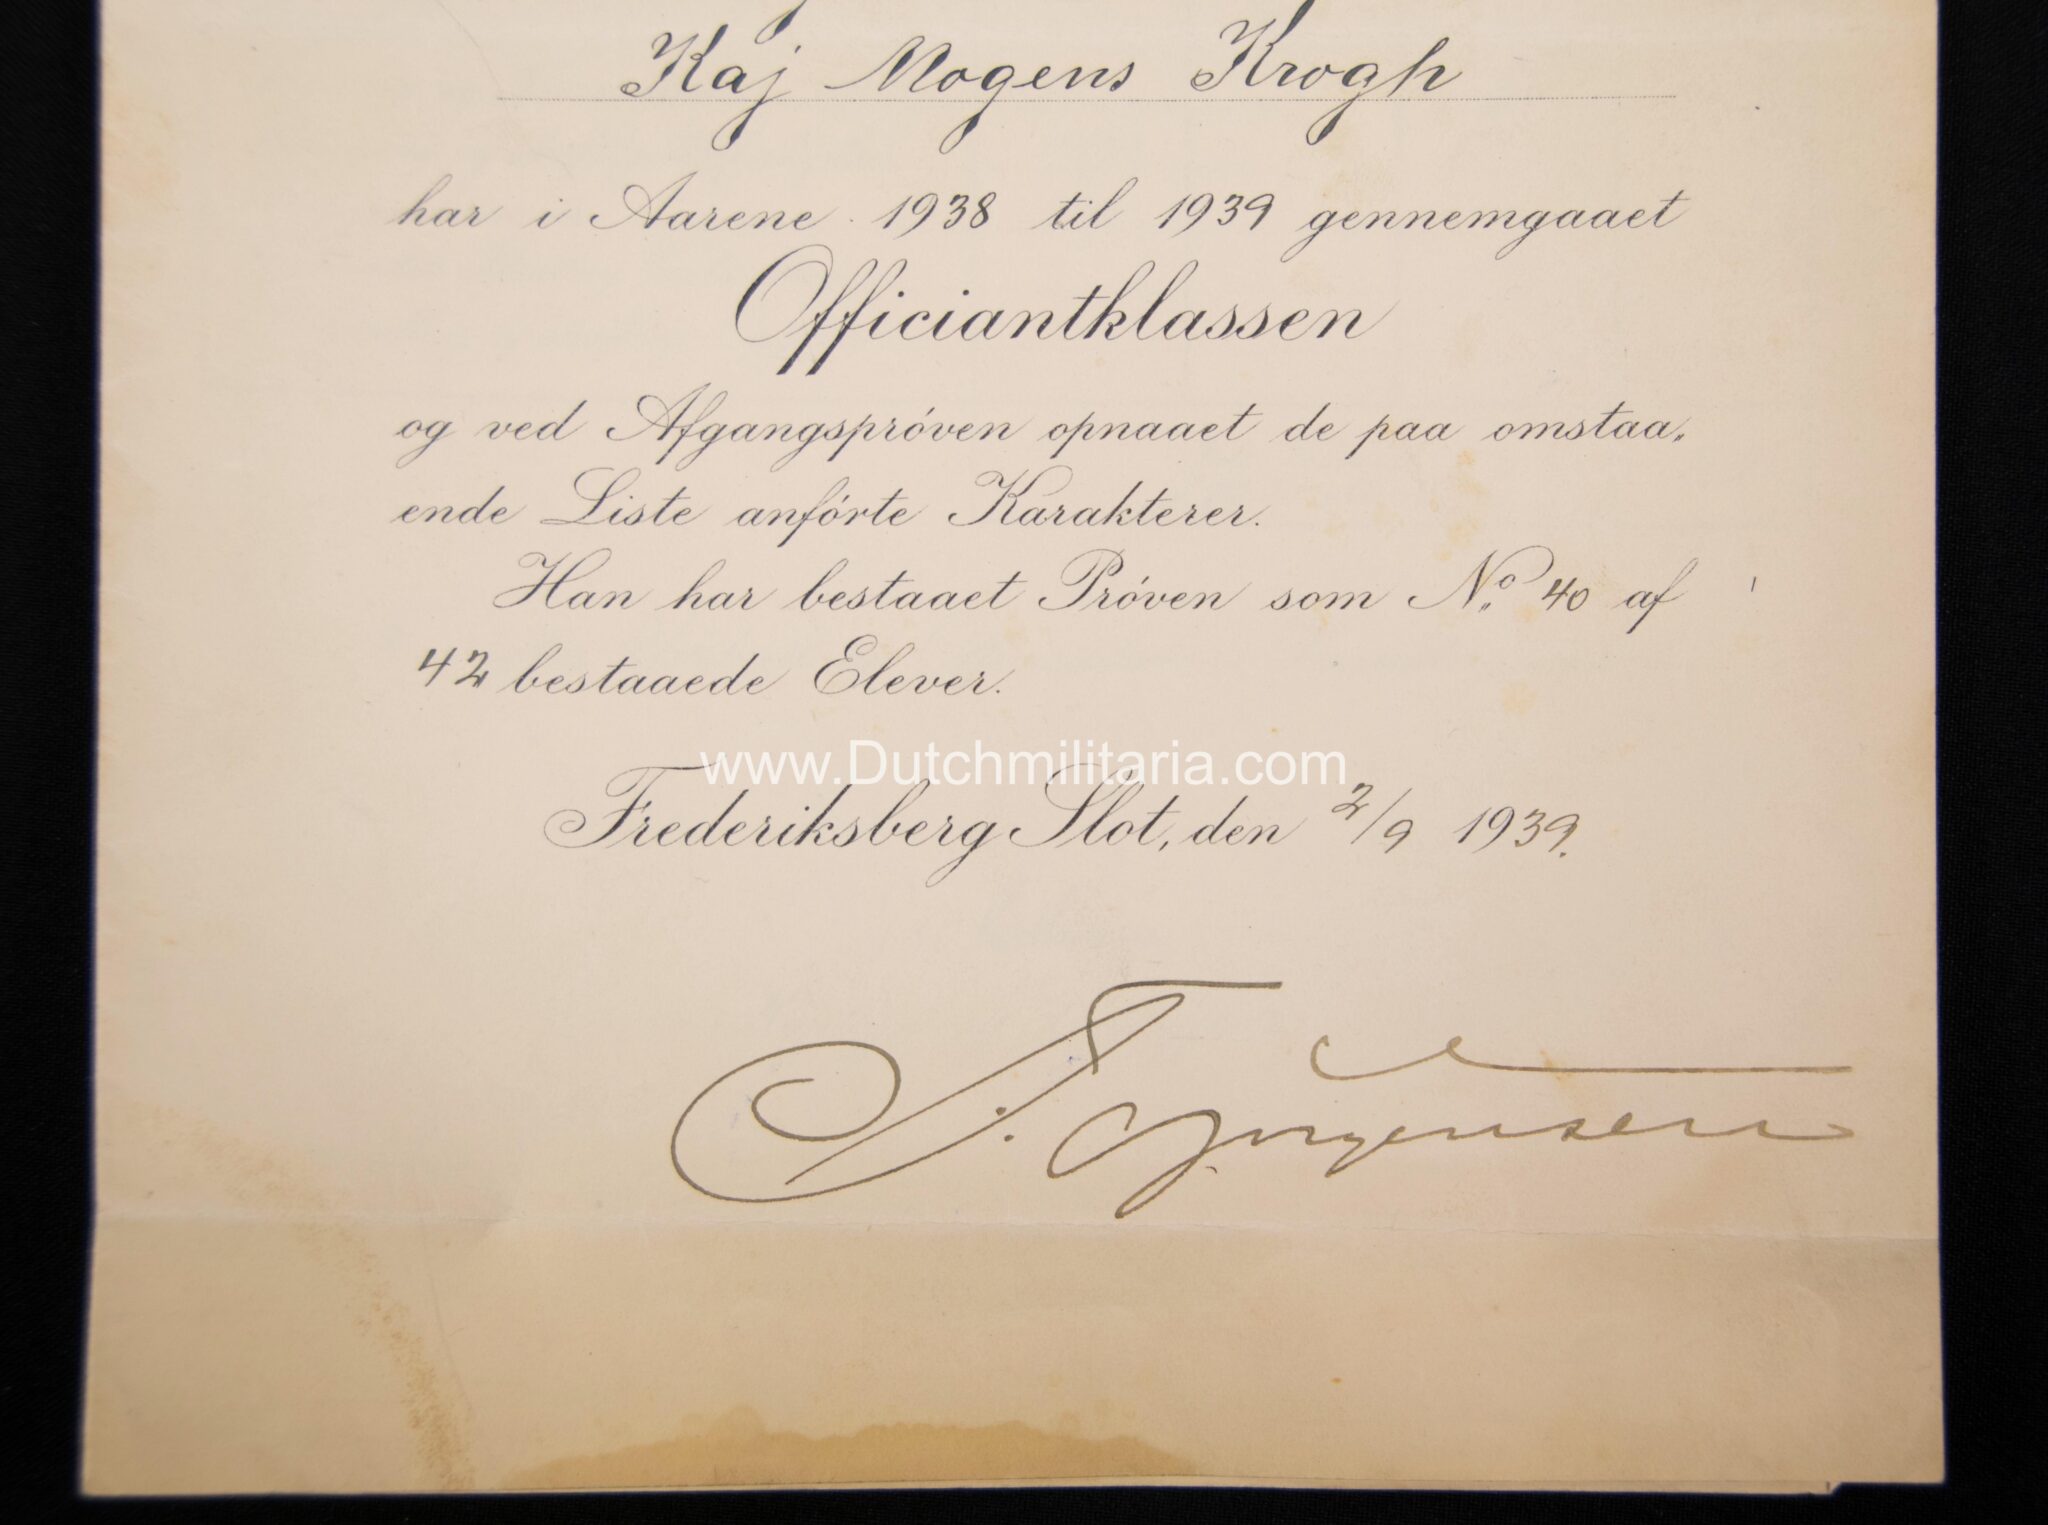 Kaj Mogens Krogh
har i Aarene 1938 til 1939 gennemgaaet
Officiantklassen
og ved Afgangspróven opnaaet de paa omstaa„
ende Liste anfórte Karakterer.
Han har bestaaet Próven som No. 40 af
42 bestaaede Elever.
www.Dutchmilitaria.com
Frederiksberg Slot, den 2/9 1939.
Jørgensen